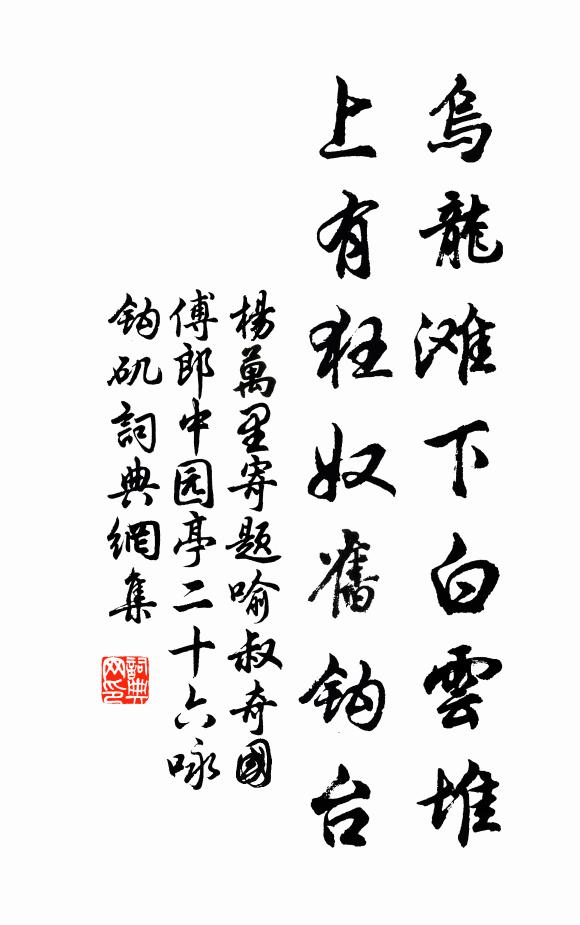 烏龍滩下白雲堆
上有狂奴舊钩台
楊萬里寄题喻叔奇國
傅郎中园亭二十六咏
钩矶詞典網集
詞典网印